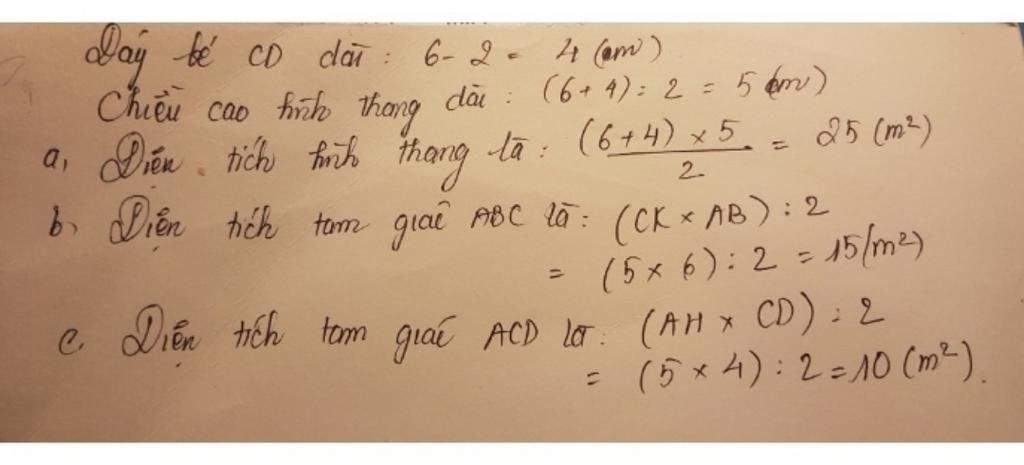 Đáy bé CD dài : 6 - 2 = 4 (m)
Chiều cao hình thang dài : (6 + 4) : 2 = 5 (m)
a, Diện tích hình thang là : (6 + 4) × 5 / 2 = 25 (m²)
b, Diện tích tam giác ABC là : (CK × AB) : 2
= (5 × 6) : 2 = 15 (m²)
c. Diện tích tam giác ACD là : (AH × CD) : 2
= (5 × 4) : 2 = 10 (m²).